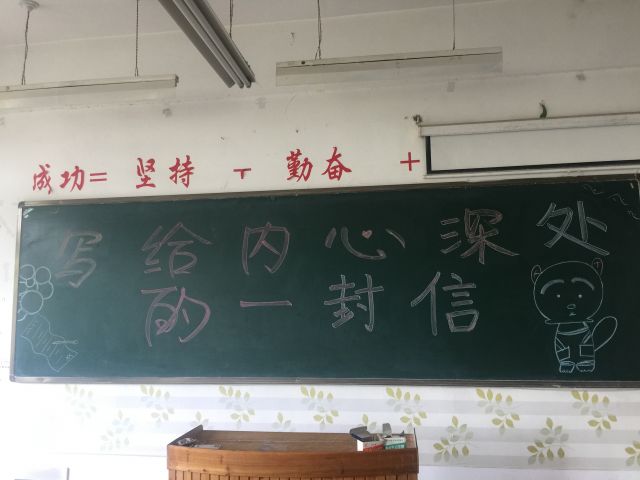 成功= 坚持 + 勤奋 +
写给内心深处
的一封信